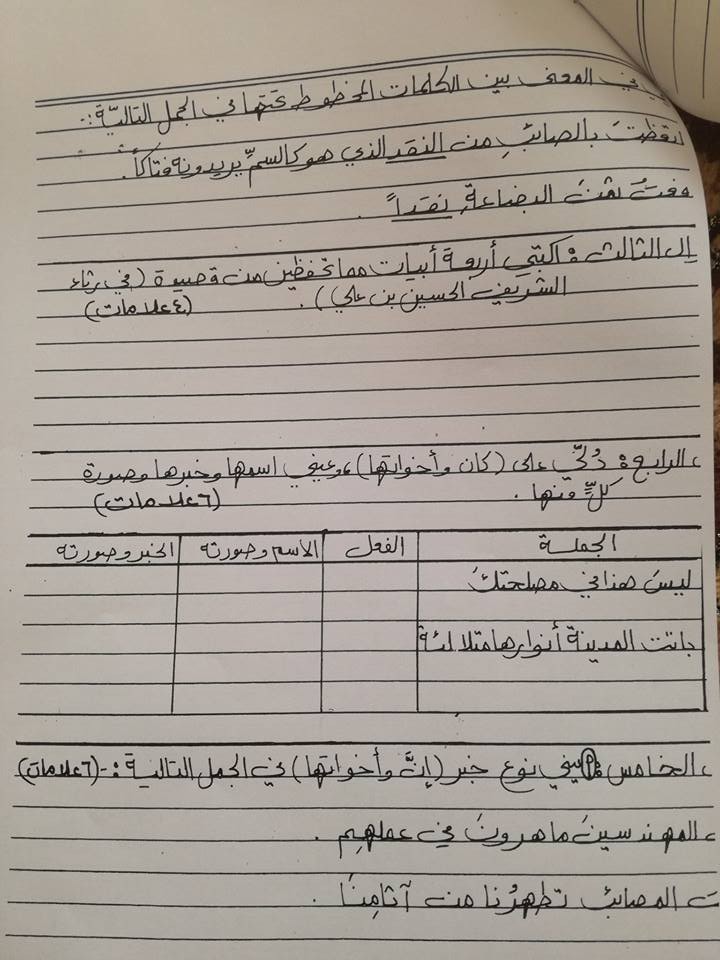 في المعنى بين الكلمات المخطوط تحتها في الجمل التاليّة:-
بالصائبِ من النقد الذي هو كالسمِّ يريدونه فتّاكاً.
ثمنَ البضاعةِ نقداً.
الثالث: اكتبي أربعة أبيات مما تحفظين من قصيدة (في رثاء
الشريف الحسين بن علي). (٤ علامات)
الرابع: دُلّي على (كان وأخواتها)، وعيني اسمها وخبرها وصورة
كلٍّ منها. (٦ علامات)
الجملة الفعل الاسم وصورته الخبر وصورته
ليسَ هذا في مصلحتكَ
باتت المدينة أنوارها متلألئة
الخامس: بيني نوع خبر (إنَّ وأخواتها) في الجمل التالية:- (٦ علامات)
المهندسينَ ماهرونَ في عملهِم.
المصائبَ تطهرُنا من آثامِنَا.